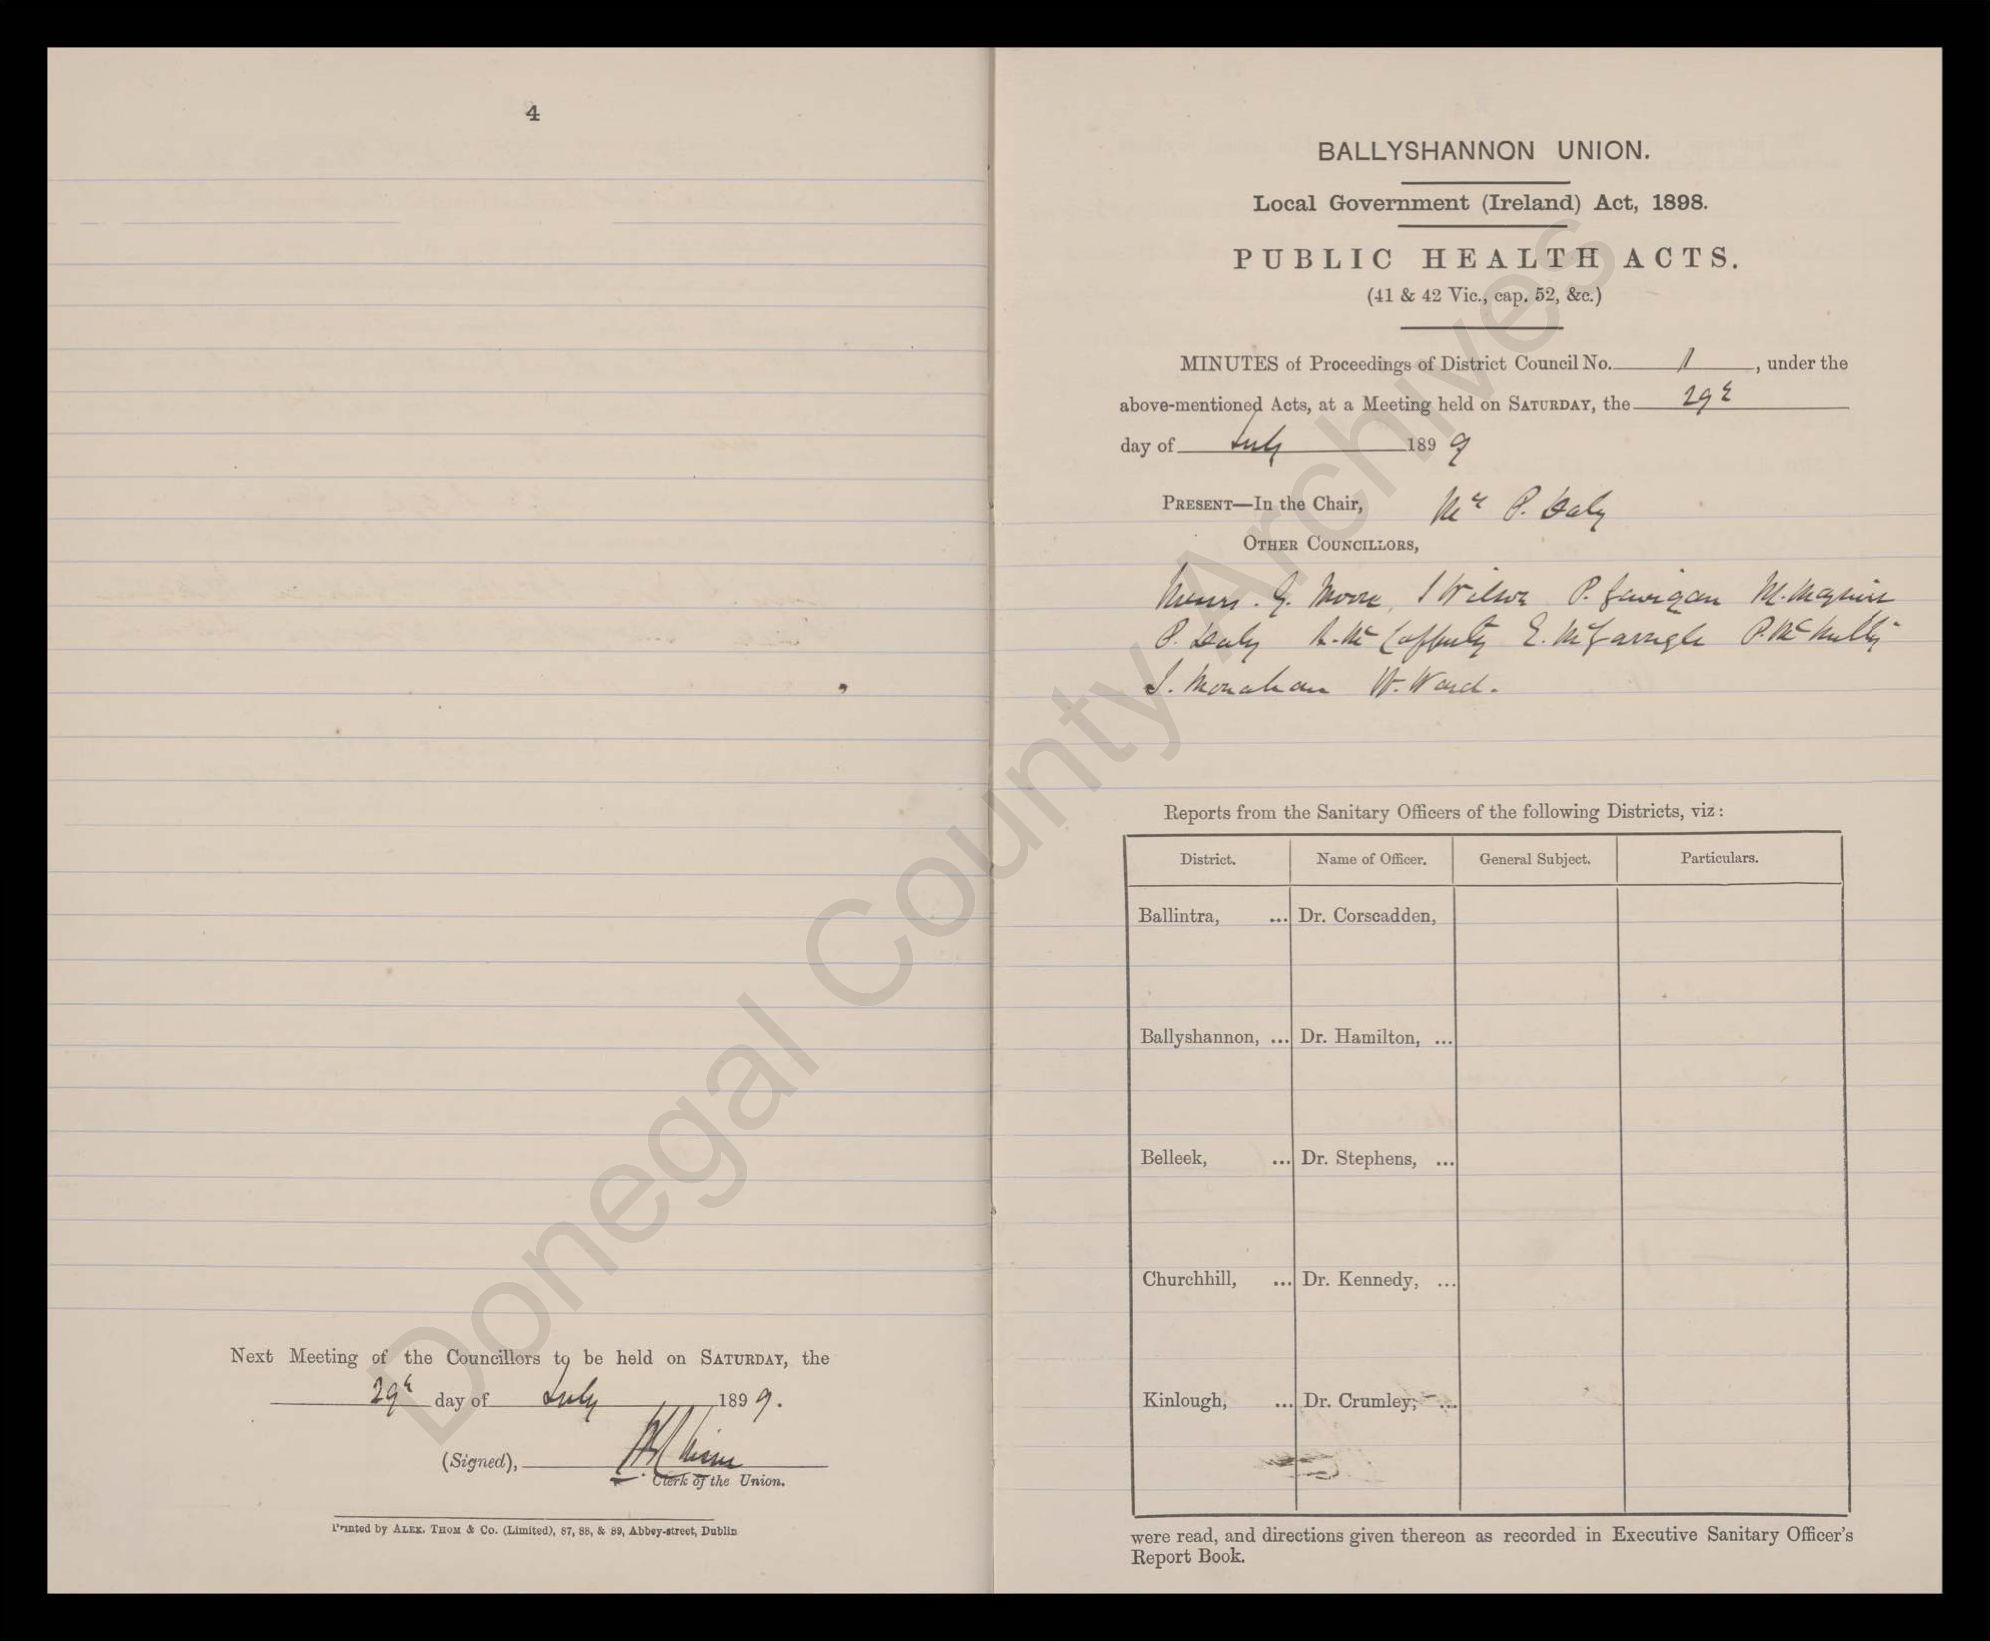 4
Next Meeting of the Councillors to be held on SATURDAY, the
29th day of July 1899.
(Signed),
Clerk of the Union.
Printed by ALEX. THOM & Co. (Limited), 87, 88, & 89, Abbey-street, Dublin
BALLYSHANNON UNION.
Local Government (Ireland) Act, 1898.
PUBLIC HEALTH ACTS.
(41 & 42 Vic., cap. 52, &c.)
MINUTES of Proceedings of District Council No. 1, under the
above-mentioned Acts, at a Meeting held on SATURDAY, the 29th
day of July 1899
PRESENT—In the Chair, Mr P. Daly
OTHER COUNCILLORS,
Messrs. G. Moore, J Wilson P. Gavigan M. Maguire
P. Daly R. McCafferty E. McGarrigle P. McNulty
J. Monahan W. Ward.
Reports from the Sanitary Officers of the following Districts, viz:
District. Name of Officer. General Subject. Particulars.
Ballintra, ... Dr. Corscadden,
Ballyshannon, ... Dr. Hamilton, ...
Belleek, ... Dr. Stephens, ...
Churchhill, ... Dr. Kennedy, ...
Kinlough, ... Dr. Crumley, ...
were read, and directions given thereon as recorded in Executive Sanitary Officer's
Report Book.
Donegal County Archives